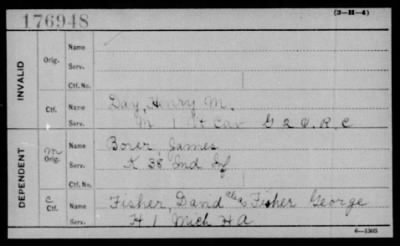 176948
(3-H-4)
INVALID
Orig. Name
Serv.
Ctf. No.
Ctf. Name Day, Henry M.
Serv. M 1 Vt Cav G 2 Q.R.C
DEPENDENT
M Orig. Name Borer, James
Serv. K 38 Ind Inf
C Ctf. Name Fisher, David alias Fisher George
Serv. H 1 Mich H A
6-1305